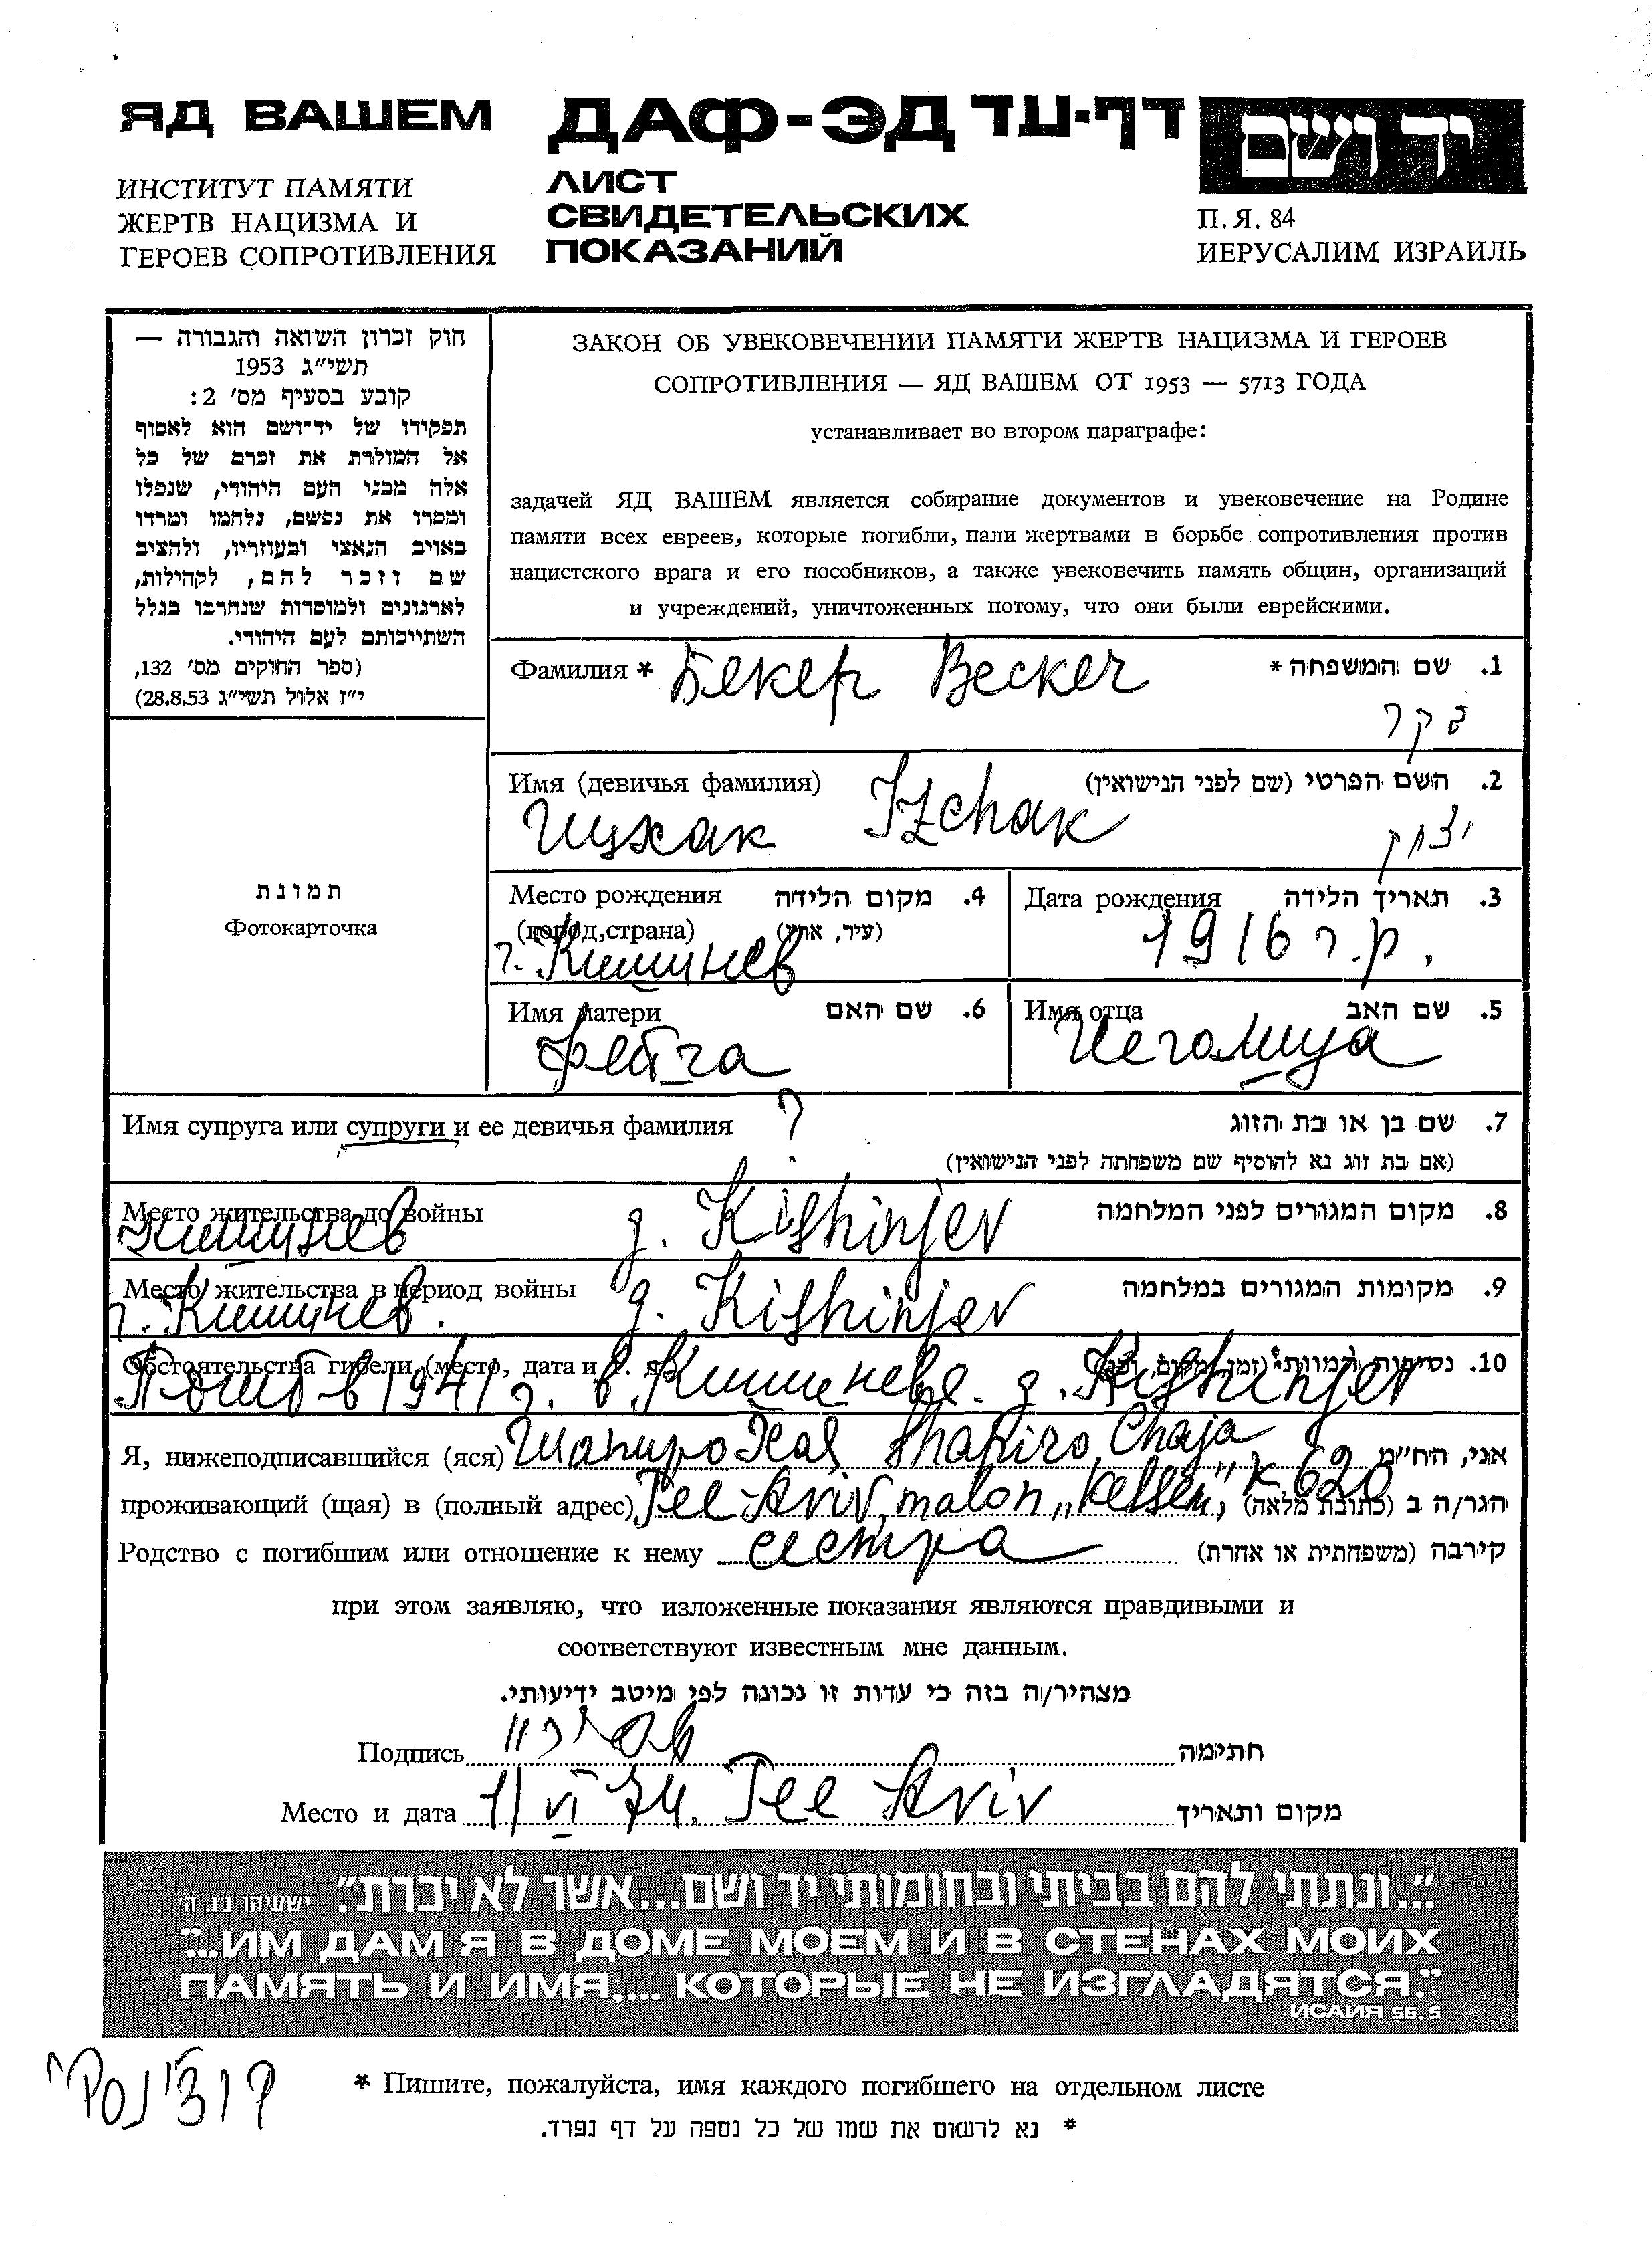 ЯД ВАШЕМ
ИНСТИТУТ ПАМЯТИ
ЖЕРТВ НАЦИЗМА И
ГЕРОЕВ СОПРОТИВЛЕНИЯ
ДАФ-ЭД דף-עד
ЛИСТ
СВИДЕТЕЛЬСКИХ
ПОКАЗАНИЙ
יד ושם
П.Я. 84
ИЕРУСАЛИМ ИЗРАИЛЬ
חוק זכרון השואה והגבורה —
תשי״ג 1953
קובע בסעיף מס׳ 2:
תפקידו של יד־ושם הוא לאסוף
אל המולדת את זכרם של כל
אלה מבני העם היהודי, שנפלו
ומסרו את נפשם, נלחמו ומרדו
באויב הנאצי ובעוזריו, ולהציב
שם וזכר להם, לקהילות,
לארגונים ולמוסדות שנחרבו בגלל
השתייכותם לעם היהודי.
(ספר החוקים מס׳ 132,
י״ז אלול תשי״ג 28.8.53)
תמונת
Фотокарточка
ЗАКОН ОБ УВЕКОВЕЧЕНИИ ПАМЯТИ ЖЕРТВ НАЦИЗМА И ГЕРОЕВ
СОПРОТИВЛЕНИЯ — ЯД ВАШЕМ ОТ 1953 — 5713 ГОДА
устанавливает во втором параграфе:
задачей ЯД ВАШЕМ является собирание документов и увековечение на Родине
памяти всех евреев, которые погибли, пали жертвами в борьбе сопротивления против
нацистского врага и его пособников, а также увековечить память общин, организаций
и учреждений, уничтоженных потому, что они были еврейскими.
Фамилия * Бекер Becker שם המשפחה * .1
בקר
Имя (девичья фамилия) השם הפרטי (שם לפני הנישואין) .2
Ицхак Izchak יצחק
Место рождения מקום הלידה .4
(город, страна) (עיר, ארץ)
г. Кишинев
Дата рождения תאריך הלידה .3
1916 г.р.
Имя матери שם האם .6
Фейга
Имя отца שם האב .5
Иегошуа
Имя супруга или супруги и ее девичья фамилия ? שם בן או בת הזוג .7
(אם בת זוג נא להוסיף שם משפחתה לפני הנישואין)
Место жительства до войны מקום המגורים לפני המלחמה .8
Кишинев g. Kishinjev
Место жительства в период войны מקומות המגורים במלחמה .9
г. Кишинев. g. Kishinjev
Обстоятельства гибели (место, дата и נסיבות המוות (זמן, מקום, .10
Погиб в 1941 г. в Кишиневе. g. Kishinjev
Я, нижеподписавшийся (яся) Шапиро Хая Shapiro Chaja אני, הח״מ
проживающий (щая) в (полный адрес) Tel-Aviv, malon „Kessem" k 620 הגר/ה ב (כתובת מלאה)
Родство с погибшим или отношение к нему сестра קירבה (משפחתית או אחרת)
при этом заявляю, что изложенные показания являются правдивыми и
соответствуют известным мне данным.
מצהיר/ה בזה כי עדות זו נכונה לפי מיטב ידיעותי.
Подпись חתימה
Место и дата 11 VI 74. Tel Aviv מקום ותאריך
״...ונתתי להם בביתי ובחומותי יד ושם...אשר לא יכרת״. ישעיהו נ״ו, ה׳
"...ИМ ДАМ Я В ДОМЕ МОЕМ И В СТЕНАХ МОИХ
ПАМЯТЬ И ИМЯ,... КОТОРЫЕ НЕ ИЗГЛАДЯТСЯ."
ИСАИЯ 56, 5
* Пишите, пожалуйста, имя каждого погибшего на отдельном листе
* נא לרשום את שמו של כל נספה על דף נפרד.